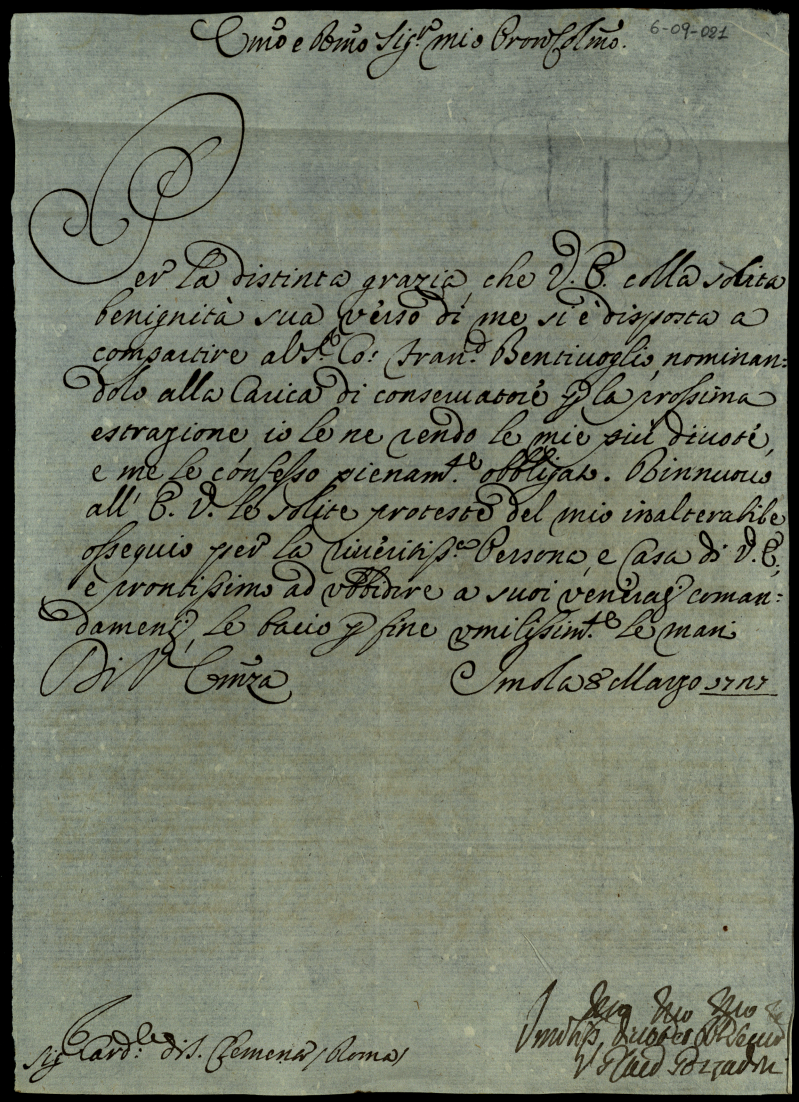 6-09-081
Emo e Rmo Sigr mio Pron Colmo.
Per la distinta grazia, che V. E. colla solita
benignità sua verso di me si è disposta a
compartire al Sr. Co: Franc. Bentivoglio, nominan:
dolo alla Carica di conservatore p la prossima
estrazione, io le ne rendo le mie più divote,
e me le confesso pienamte. obbligato. Rinnuovo
all' E. V. le solite proteste del mio inalterabile
ossequio per la riveritissa Persona, e Casa di V. E.,
e prontissimo ad ubbidire a suoi venerati coman:
damenti, le bacio p fine umilissimte. le mani.
Di V. Emza Imola 8 Marzo 1727
Sig Cardle: di S. Clemente / Roma /